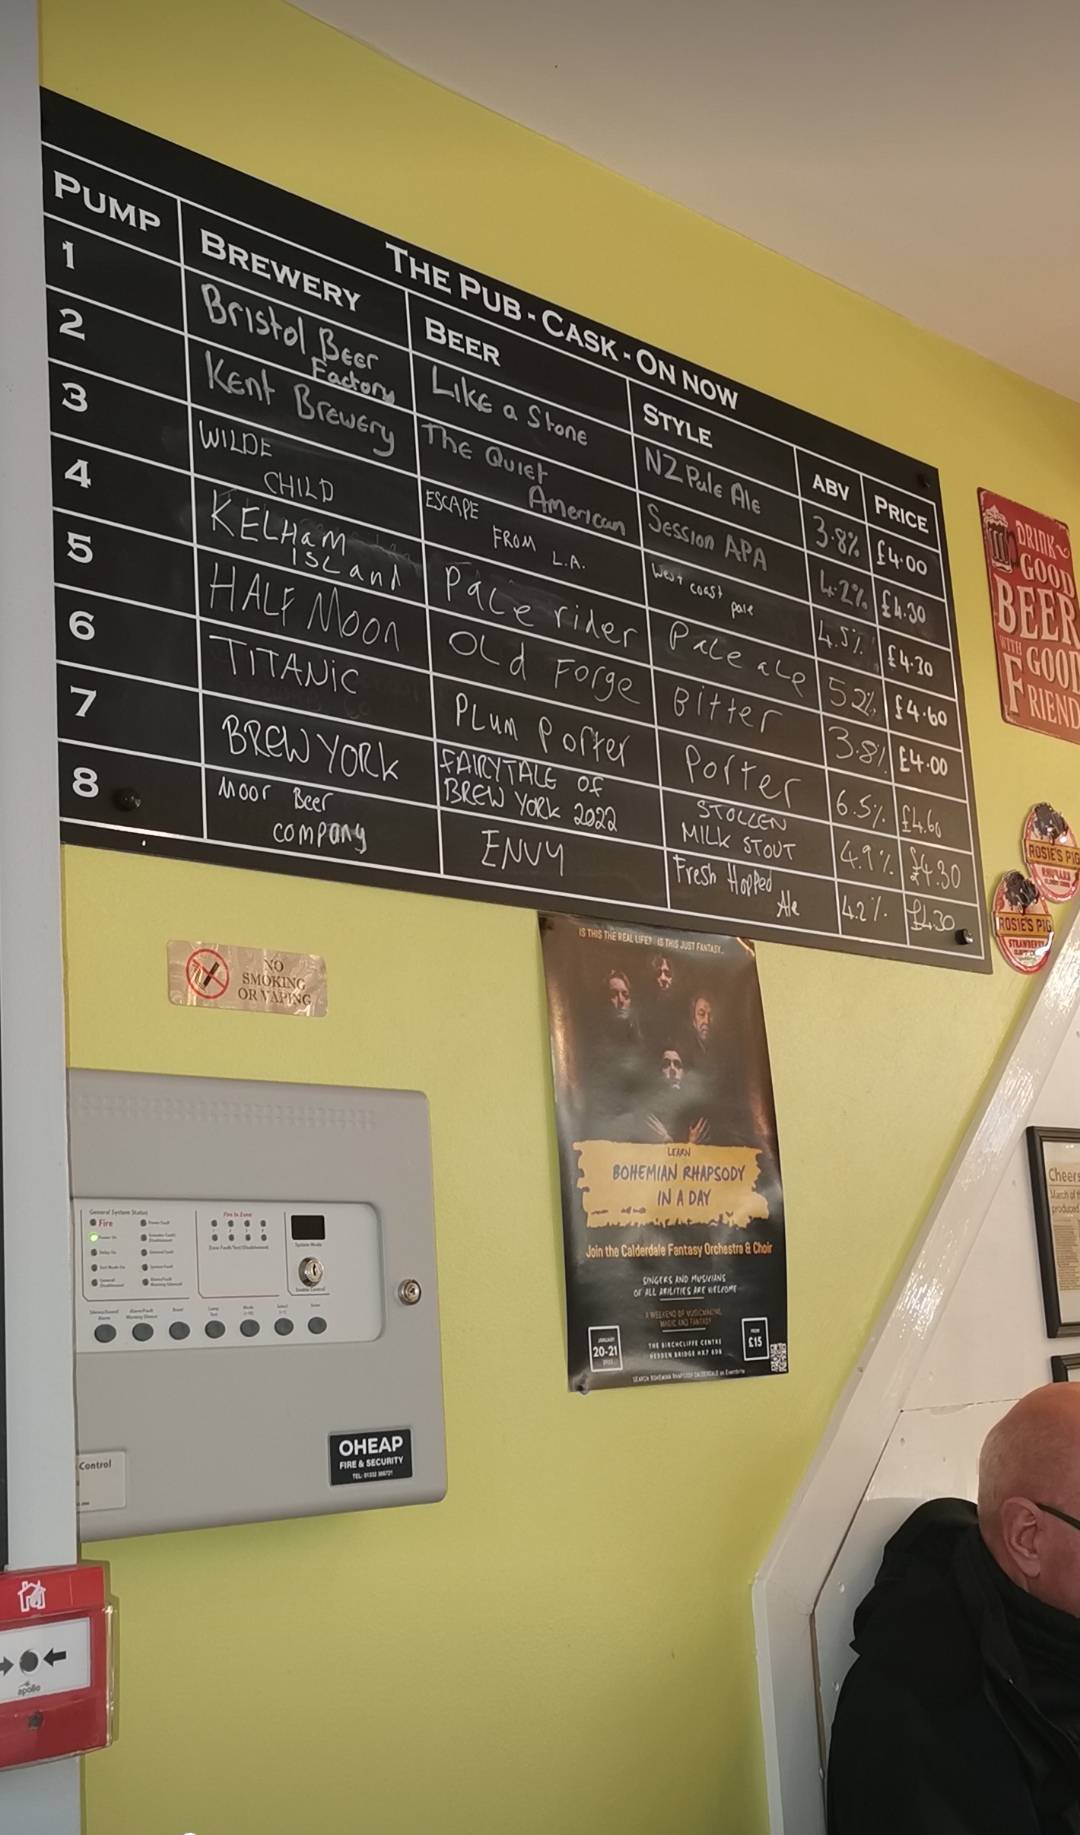 THE PUB - CASK - ON NOW
PUMP BREWERY BEER STYLE ABV PRICE
1 Bristol Beer Factory Like a Stone NZ Pale Ale 3.8% £4.00
2 Kent Brewery The Quiet American Session APA 4.2% £4.30
3 WILDE CHILD ESCAPE FROM L.A. West coast pale 4.5% £4.30
4 KELHAM ISLand Pale rider Pale ale 5.2% £4.60
5 HALF MOON OLd Forge Bitter 3.8% £4.00
6 TITANIC PLUM Porter Porter 6.5% £4.60
7 BREW YORK FAIRYTALE OF BREW YORK 2022 STOLLEN MILK STOUT 4.9% £4.30
8 Moor Beer company ENVY Fresh Hopped Ale 4.2% £4.30
DRINK
GOOD
BEER
WITH
GOOD
FRIEND
ROSIE'S PIG
RHUBARB
ROSIE'S PIG
STRAWBERRY
NO
SMOKING
OR VAPING
IS THIS THE REAL LIFE? IS THIS JUST FANTASY...
LEARN
BOHEMIAN RHAPSODY
IN A DAY
Join the Calderdale Fantasy Orchestra & Choir
SINGERS AND MUSICIANS
OF ALL ABILITIES ARE WELCOME
A WEEKEND OF MUSICMAKING,
MAGIC AND FANTASY
JANUARY
20-21
THE BIRCHCLIFFE CENTRE
HEBDEN BRIDGE HX7 8DG
FROM
£15
SEARCH BOHEMIAN RHAPSODY CALDERDALE on Eventbrite
Cheers
March of
produced
General System Status
Fire
Power On
Fire In Zone
Zone Fault/Test/Disablement
System Mode
Enable Control
Control
OHEAP
FIRE & SECURITY
apollo